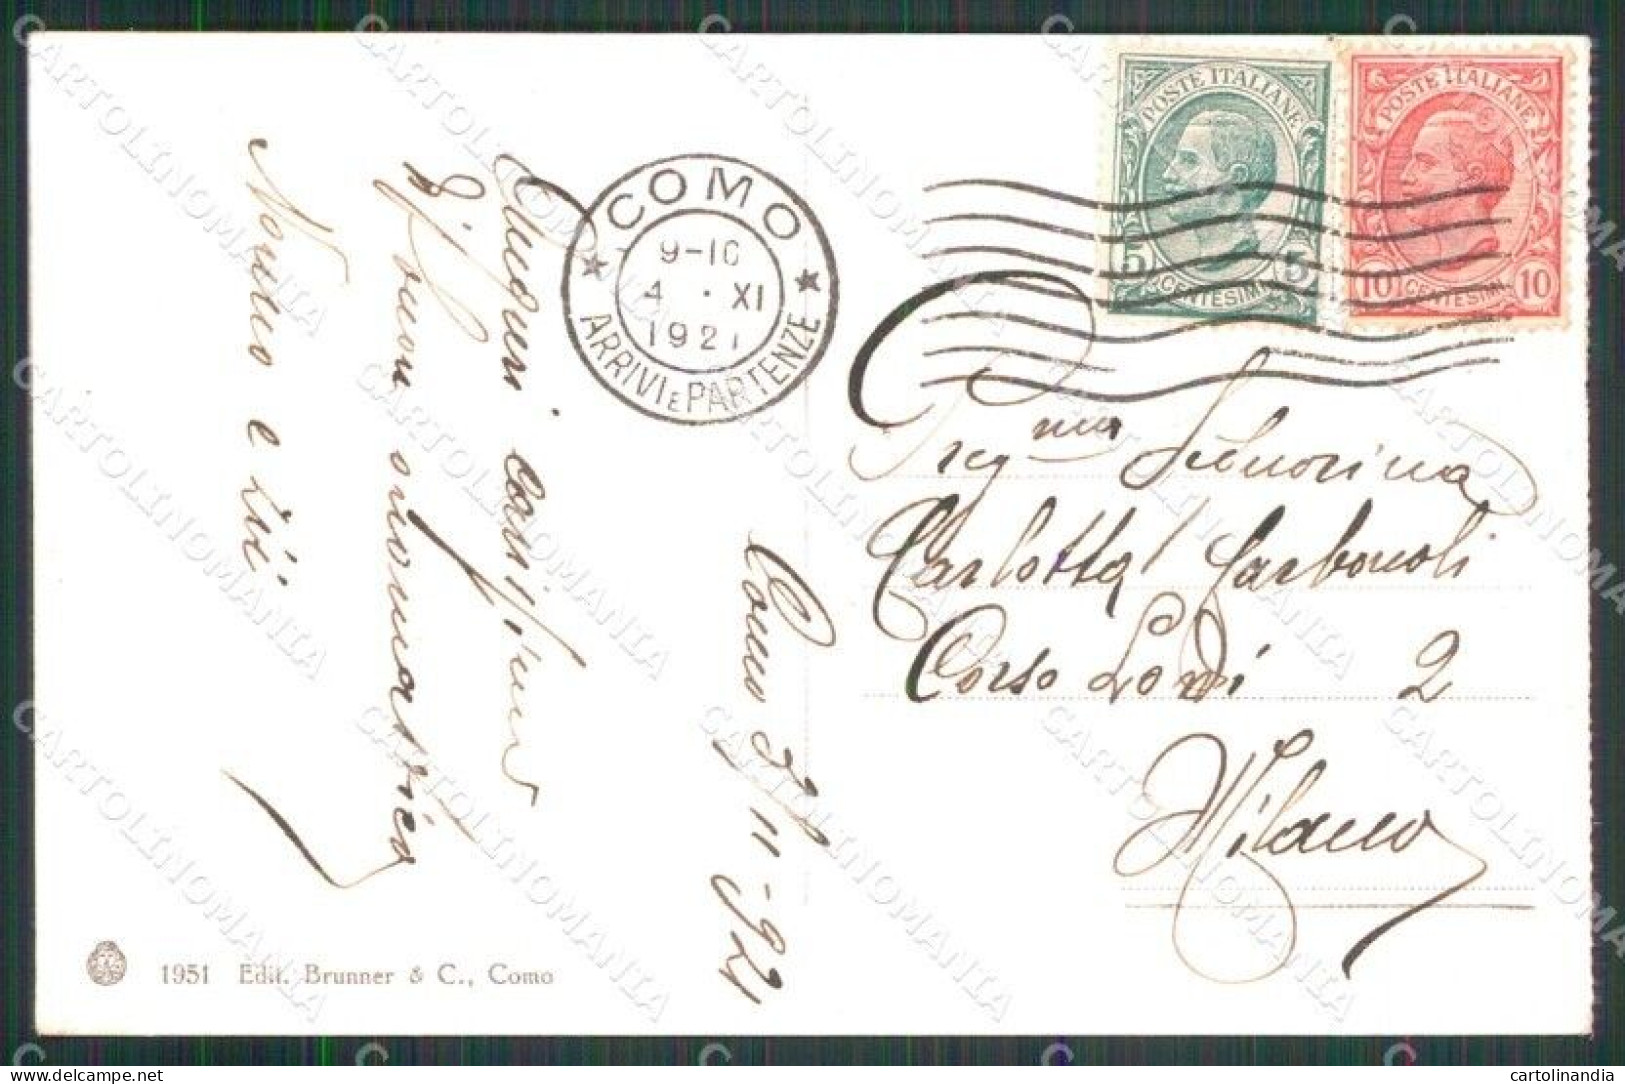 POSTE ITALIANE
5 CENTESIMI 5
POSTE ITALIANE
10 CENTESIMI 10
COMO
9-10
4 · XI
1921
ARRIVI E PARTENZE
Preg.ma Signorina
Carlotta Carboncoli
Corso Lodi 2
Milano
Como 3/11-921
Auguri carissimi
di buon onomastico
e
1951 Edit. Brunner & C., Como
CARTOLINOMANIA
delcampe.net
cartolinandia